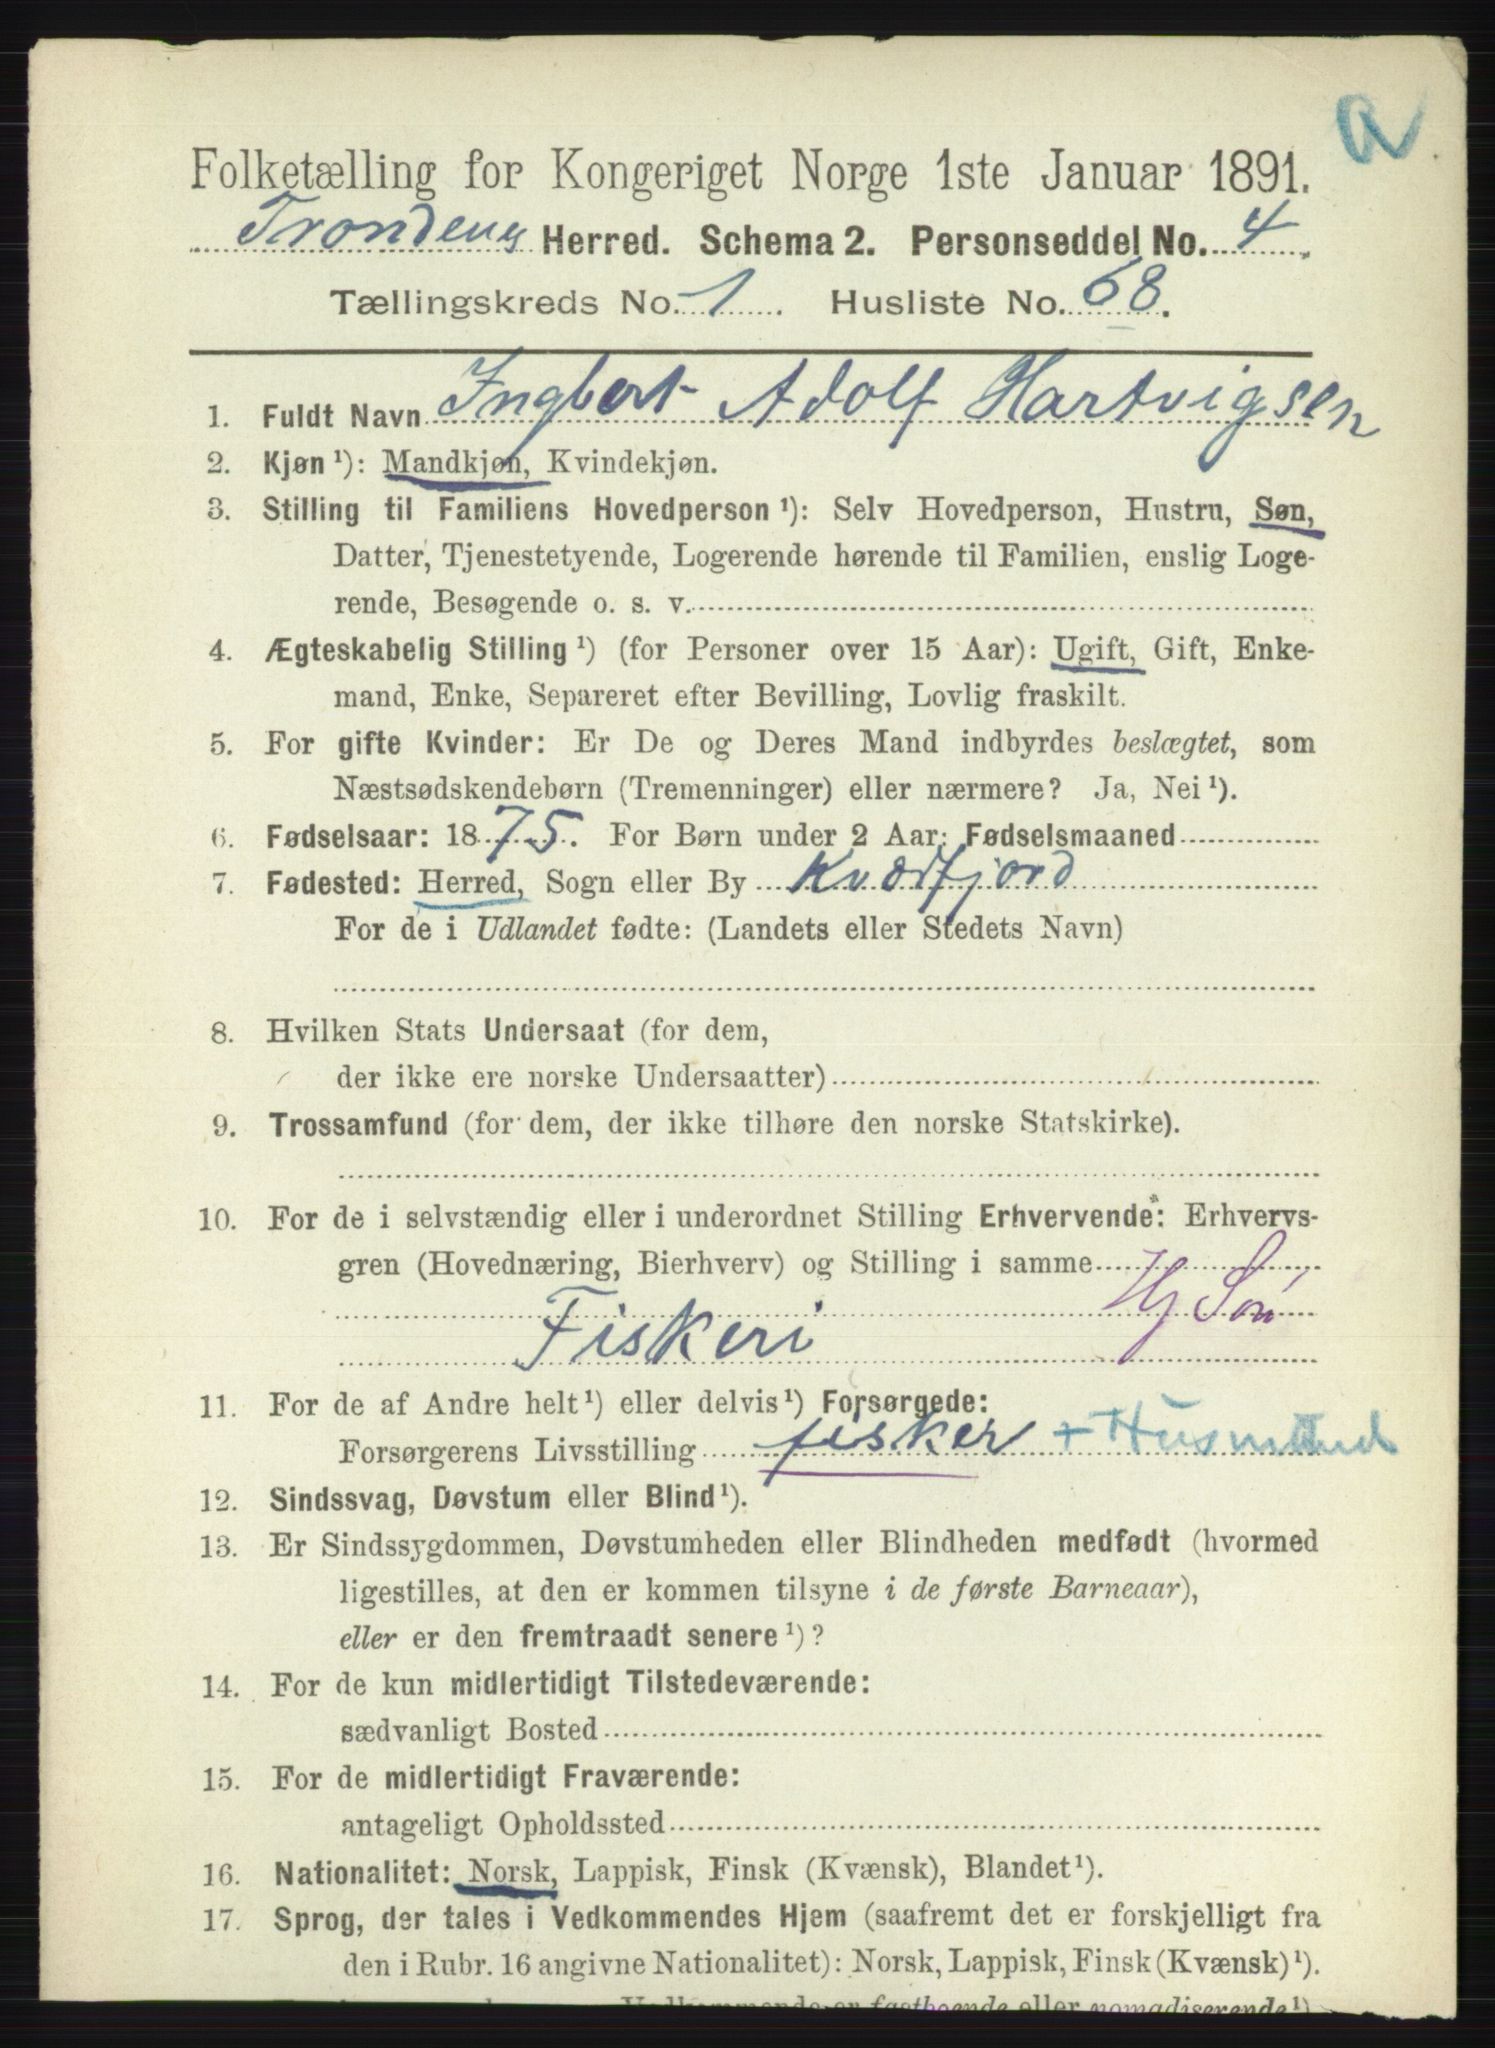 a
Folketælling for Kongeriget Norge 1ste Januar 1891.
Trondenes Herred. Schema 2. Personseddel No. 4
Tællingskreds No. 1. Husliste No. 68.
1. Fuldt Navn Ingbert Adolf Hartvigsen
2. Kjøn ¹): Mandkjøn, Kvindekjøn.
3. Stilling til Familiens Hovedperson ¹): Selv Hovedperson, Hustru, Søn,
Datter, Tjenestetyende, Logerende hørende til Familien, enslig Loge-
rende, Besøgende o. s. v.
4. Ægteskabelig Stilling ¹) (for Personer over 15 Aar): Ugift, Gift, Enke-
mand, Enke, Separeret efter Bevilling, Lovlig fraskilt.
5. For gifte Kvinder: Er De og Deres Mand indbyrdes beslægtet, som
Næstsødskendebørn (Tremenninger) eller nærmere? Ja, Nei ¹).
6. Fødselsaar: 1875. For Børn under 2 Aar: Fødselsmaaned
7. Fødested: Herred, Sogn eller By Kvæfjord
For de i Udlandet fødte: (Landets eller Stedets Navn)
8. Hvilken Stats Undersaat (for dem,
der ikke ere norske Undersaatter)
9. Trossamfund (for dem, der ikke tilhøre den norske Statskirke).
10. For de i selvstændig eller i underordnet Stilling Erhvervende: Erhvervs-
gren (Hovednæring, Bierhverv) og Stilling i samme
Fiskeri Hj Søn
11. For de af Andre helt ¹) eller delvis ¹) Forsørgede:
Forsørgerens Livsstilling fisker + Husmand
12. Sindssvag, Døvstum eller Blind ¹).
13. Er Sindssygdommen, Døvstumheden eller Blindheden medfødt (hvormed
ligestilles, at den er kommen tilsyne i de første Barneaar),
eller er den fremtraadt senere ¹)?
14. For de kun midlertidigt Tilstedeværende:
sædvanligt Bosted
15. For de midlertidigt Fraværende:
antageligt Opholdssted
16. Nationalitet: Norsk, Lappisk, Finsk (Kvænsk), Blandet ¹).
17. Sprog, der tales i Vedkommendes Hjem (saafremt det er forskjelligt fra
den i Rubr. 16 angivne Nationalitet): Norsk, Lappisk, Finsk (Kvænsk) ¹).
Vedkommende er fastboende eller nomadiserende ¹)